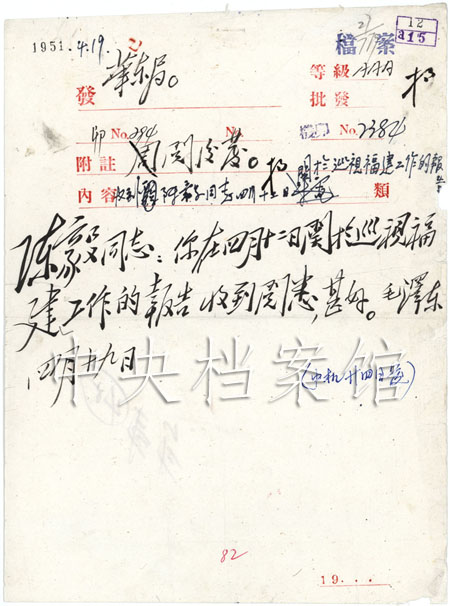 1951. 4.19. 2
12
a15
檔案
發 華东局。
等級 AAA
批發
卯 No. 294 No.
機 No. 2384
附註 周閱后發。
關於巡視福建工作的報告
內容 收到 同志四月十二日 類
陈毅同志：你在四月十二日關於巡視福
建工作的報告收到閱悉，甚好。毛澤东
四月十九日
中央档案馆
82
19...